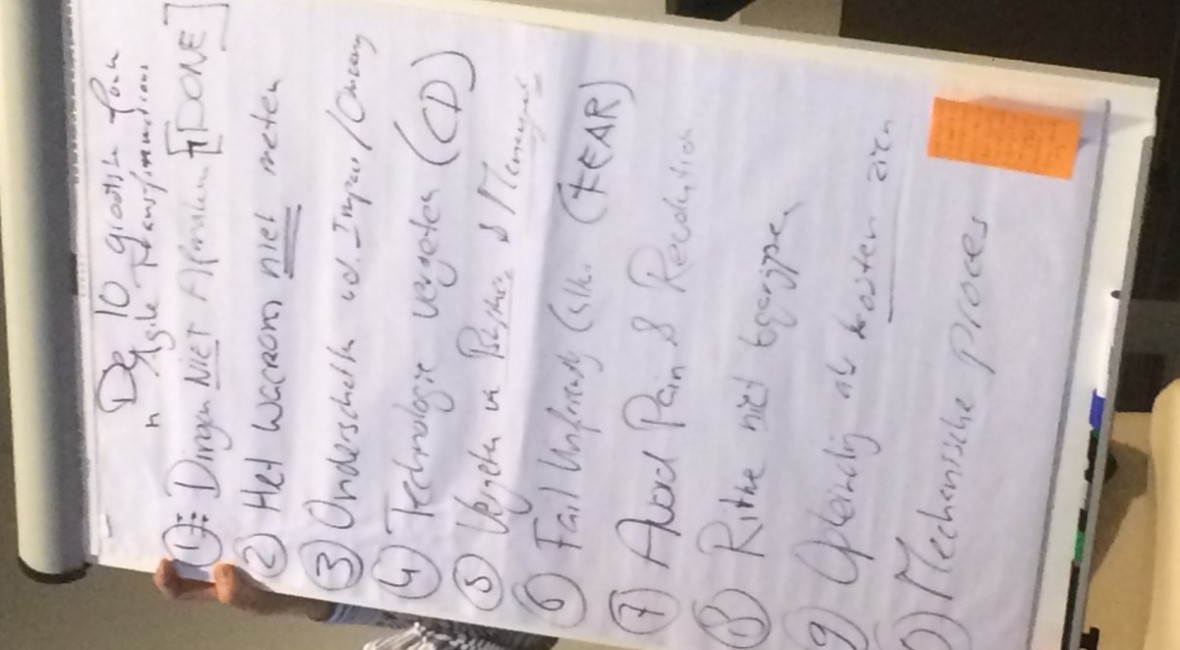 De 10 grootste fouten
in Agile Transformations
1 Dingen NIET Afmaken [DONE]
2 Het waarom niet meten
3 Onderschatten vd. Improv/
4 Technologie vergeten (CD)
5 Vergeten vd & Manager
6 Fail Unfriendly Cultu. (FEAR)
7 Avoid Pain & Revolution
8 Ritme niet begrijpen
9 Opleiding als kosten zien
10 Mechanische proces